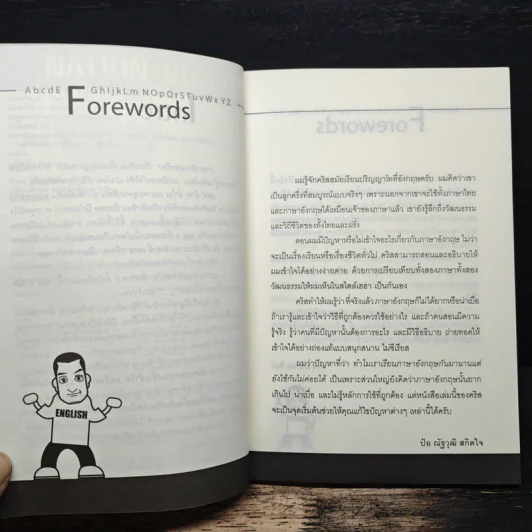 AbcdE Forewords GhIjkLm NOpQrSTuvWxYZ
ENGLISH
ผมรู้จักคริสสมัยเรียนปริญญาโทที่อังกฤษครับ ผมคิดว่าเขา
เป็นลูกครึ่งที่สมบูรณ์แบบจริงๆ เพราะนอกจากเขาจะใช้ทั้งภาษาไทย
และภาษาอังกฤษได้เหมือนเจ้าของภาษาแล้ว เขายังรู้ลึกถึงวัฒนธรรม
และวิถีชีวิตของทั้งไทยและฝรั่ง
ตอนผมมีปัญหาหรือไม่เข้าใจอะไรเกี่ยวกับภาษาอังกฤษ ไม่ว่า
จะเป็นเรื่องเรียนหรือเรื่องชีวิตทั่วไป คริสสามารถสอนและอธิบายให้
ผมเข้าใจได้อย่างง่ายดาย ด้วยการเปรียบเทียบทั้งสองภาษาทั้งสอง
วัฒนธรรมให้ผมเห็นในสไตล์เฮฮา เป็นกันเอง
คริสทำให้ผมรู้ว่าที่จริงแล้ว ภาษาอังกฤษก็ไม่ได้ยากหรือน่าเบื่อ
ถ้าเรารู้และเข้าใจว่าวิธีที่ถูกต้องควรใช้อย่างไร และถ้าคนสอนมีความ
รู้จริง รู้ว่าคนที่มีปัญหานั้นต้องการอะไร และมีวิธีอธิบาย ถ่ายทอดให้
เข้าใจได้อย่างถ่องแท้แบบสนุกสนาน ไม่ซีเรียส
ผมว่าปัญหาที่ว่า ทำไมเราเรียนภาษาอังกฤษกันมานานแต่
ยังใช้กันไม่ค่อยได้ เป็นเพราะส่วนใหญ่ยังคิดว่าภาษาอังกฤษนั้นยาก
เกินไป น่าเบื่อ และไม่รู้หลักการใช้ที่ถูกต้อง แต่หนังสือเล่มนี้ของคริส
จะเป็นจุดเริ่มต้นช่วยให้คุณแก้ไขปัญหาต่างๆ เหล่านี้ได้ครับ
ป๋อ ณัฐวุฒิ สกิดใจ